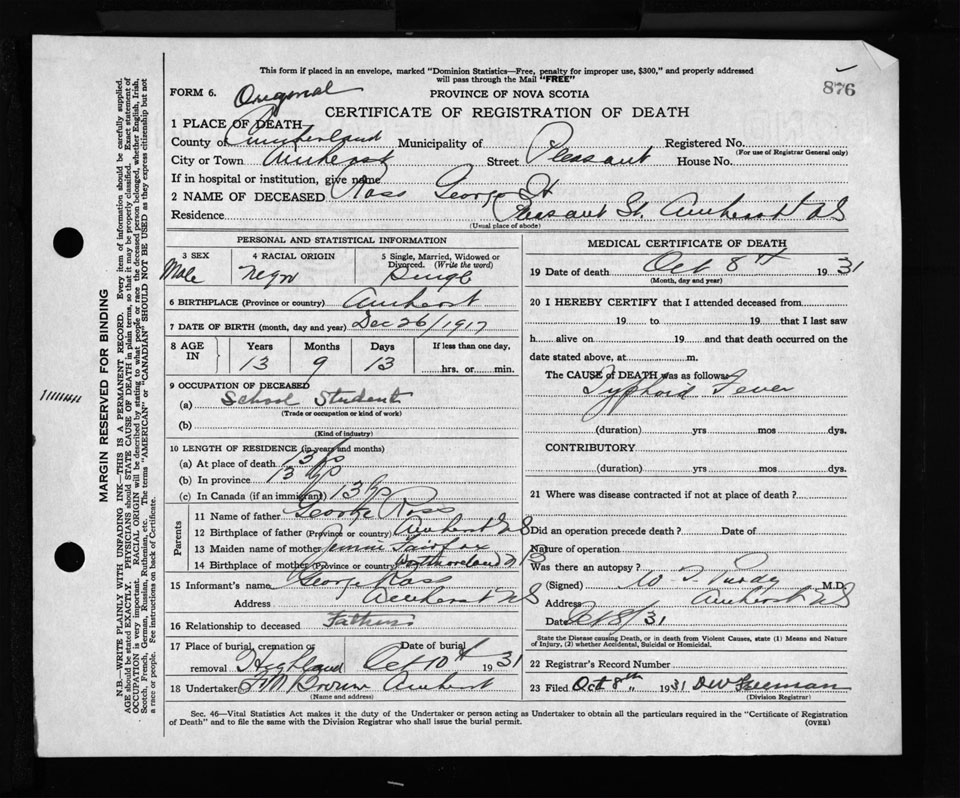 This form if placed in an envelope, marked "Dominion Statistics—Free, penalty for improper use, $300," and properly addressed
will pass through the Mail "FREE"
876
FORM 6. Original PROVINCE OF NOVA SCOTIA
CERTIFICATE OF REGISTRATION OF DEATH
1 PLACE OF DEATH—
County of Cumberland Municipality of Registered No.
(For use of Registrar General only)
City or Town Amherst Street Pleasant House No.
If in hospital or institution, give name
2 NAME OF DECEASED Ross George
Residence Pleasant St. Amherst NS
(Usual place of abode)
PERSONAL AND STATISTICAL INFORMATION
3 SEX 4 RACIAL ORIGIN 5 Single, Married, Widowed or
Divorced. (Write the word)
Male Negro Single
6 BIRTHPLACE (Province or country) Amherst
7 DATE OF BIRTH (month, day and year) Dec 26/1917
8 AGE IN Years Months Days If less than one day,
13 9 13 hrs. or min.
9 OCCUPATION OF DECEASED
(a) School Student
(Trade or occupation or kind of work)
(b)
(Kind of industry)
10 LENGTH OF RESIDENCE (in years and months)
(a) At place of death 13
(b) In province 13
(c) In Canada (if an immigrant) 13
Parents
11 Name of father George Ross
12 Birthplace of father (Province or country) Amherst NS
13 Maiden name of mother Fairfax
14 Birthplace of mother (Province or country) NS
15 Informant's name George Ross
Address Amherst NS
16 Relationship to deceased Father
17 Place of burial, cremation or removal Date of burial
Highland Oct 10th 1931
18 Undertaker Brown Amherst
(Name and address)
MEDICAL CERTIFICATE OF DEATH
19 Date of death Oct 8th 1931
(Month, day and year)
20 I HEREBY CERTIFY that I attended deceased from
19 to 19 that I last saw
h alive on 19 and that death occurred on the
date stated above, at m.
The CAUSE of DEATH was as follows:
Typhoid Fever
(duration) yrs mos dys.
CONTRIBUTORY
(duration) yrs mos dys.
21 Where was disease contracted if not at place of death?
Did an operation precede death? Date of
Nature of operation
Was there an autopsy?
(Signed) Purdy M.D.
Address Amherst NS
Date Oct 8/31
State the Disease causing Death, or in death from Violent Causes, state (1) Means and Nature
of Injury, (2) whether Accidental, Suicidal or Homicidal.
22 Registrar's Record Number
23 Filed Oct 8th 1931 Freeman
(Division Registrar)
Sec. 46—Vital Statistics Act makes it the duty of the Undertaker or person acting as Undertaker to obtain all the particulars required in the "Certificate of Registration
of Death" and to file the same with the Division Registrar who shall issue the burial permit. (OVER)
MARGIN RESERVED FOR BINDING
N.B.—WRITE PLAINLY WITH UNFADING INK—THIS IS A PERMANENT RECORD. Every item of information should be carefully supplied.
AGE should be stated EXACTLY. PHYSICIANS should STATE CAUSE OF DEATH in plain terms, so that it may be properly classified. Exact statement of
OCCUPATION is very important. RACIAL ORIGIN will be described by stating to what people or race the deceased person belonged, whether English, Irish,
Scotch, French, German, Russian, Ruthenian, etc. The terms "AMERICAN" or "CANADIAN" SHOULD NOT BE USED as they express citizenship but not
a race or people. See instructions on back of Certificate.